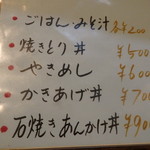 ・ごはん・みそ汁 各¥200
・焼きとり丼 ¥500
・やきめし ¥600
・かきあげ丼 ¥700
・石焼きあんかけ丼 ¥900